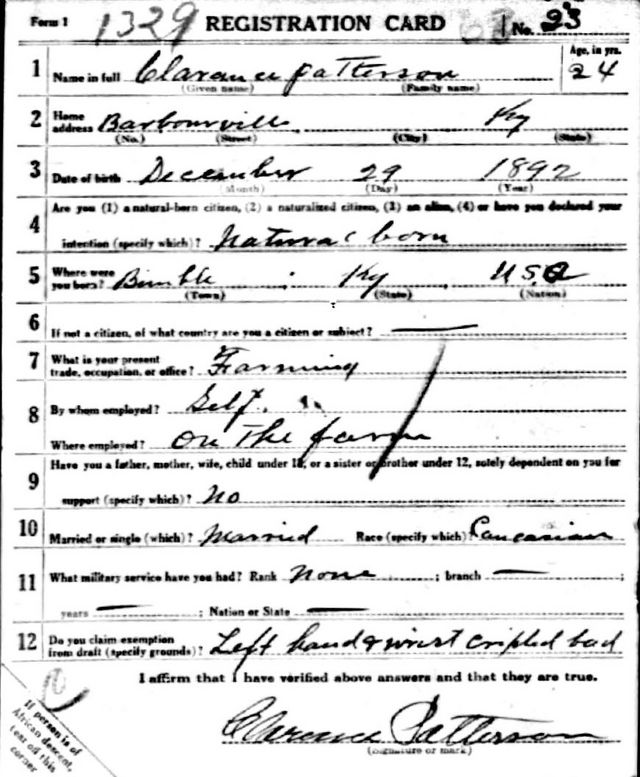 Form 1 1329 REGISTRATION CARD No. 23
1 Name in full Clarance Patterson Age, in yrs. 24
(Given name) (Family name)
2 Home address Barbourville Ky
(No.) (Street) (City) (State)
3 Date of birth December 29 1892
(Month) (Day) (Year)
4 Are you (1) a natural-born citizen, (2) a naturalized citizen, (3) an alien, (4) or have you declared your
intention (specify which)? Natural born
5 Where were you born? Bimble Ky USA
(Town) (State) (Nation)
6 If not a citizen, of what country are you a citizen or subject? —
7 What is your present trade, occupation, or office? Farming
8 By whom employed? Self.
Where employed? On The farm
9 Have you a father, mother, wife, child under 12, or a sister or brother under 12, solely dependent on you for
support (specify which)? No
10 Married or single (which)? Married Race (specify which)? Caucasian
11 What military service have you had? Rank None ; branch —
years — ; Nation or State —
12 Do you claim exemption from draft (specify grounds)? Left hand & wrist cripled bad
I affirm that I have verified above answers and that they are true.
Clarence Patterson
(Signature or mark)
If person is of
African descent,
tear off this
corner